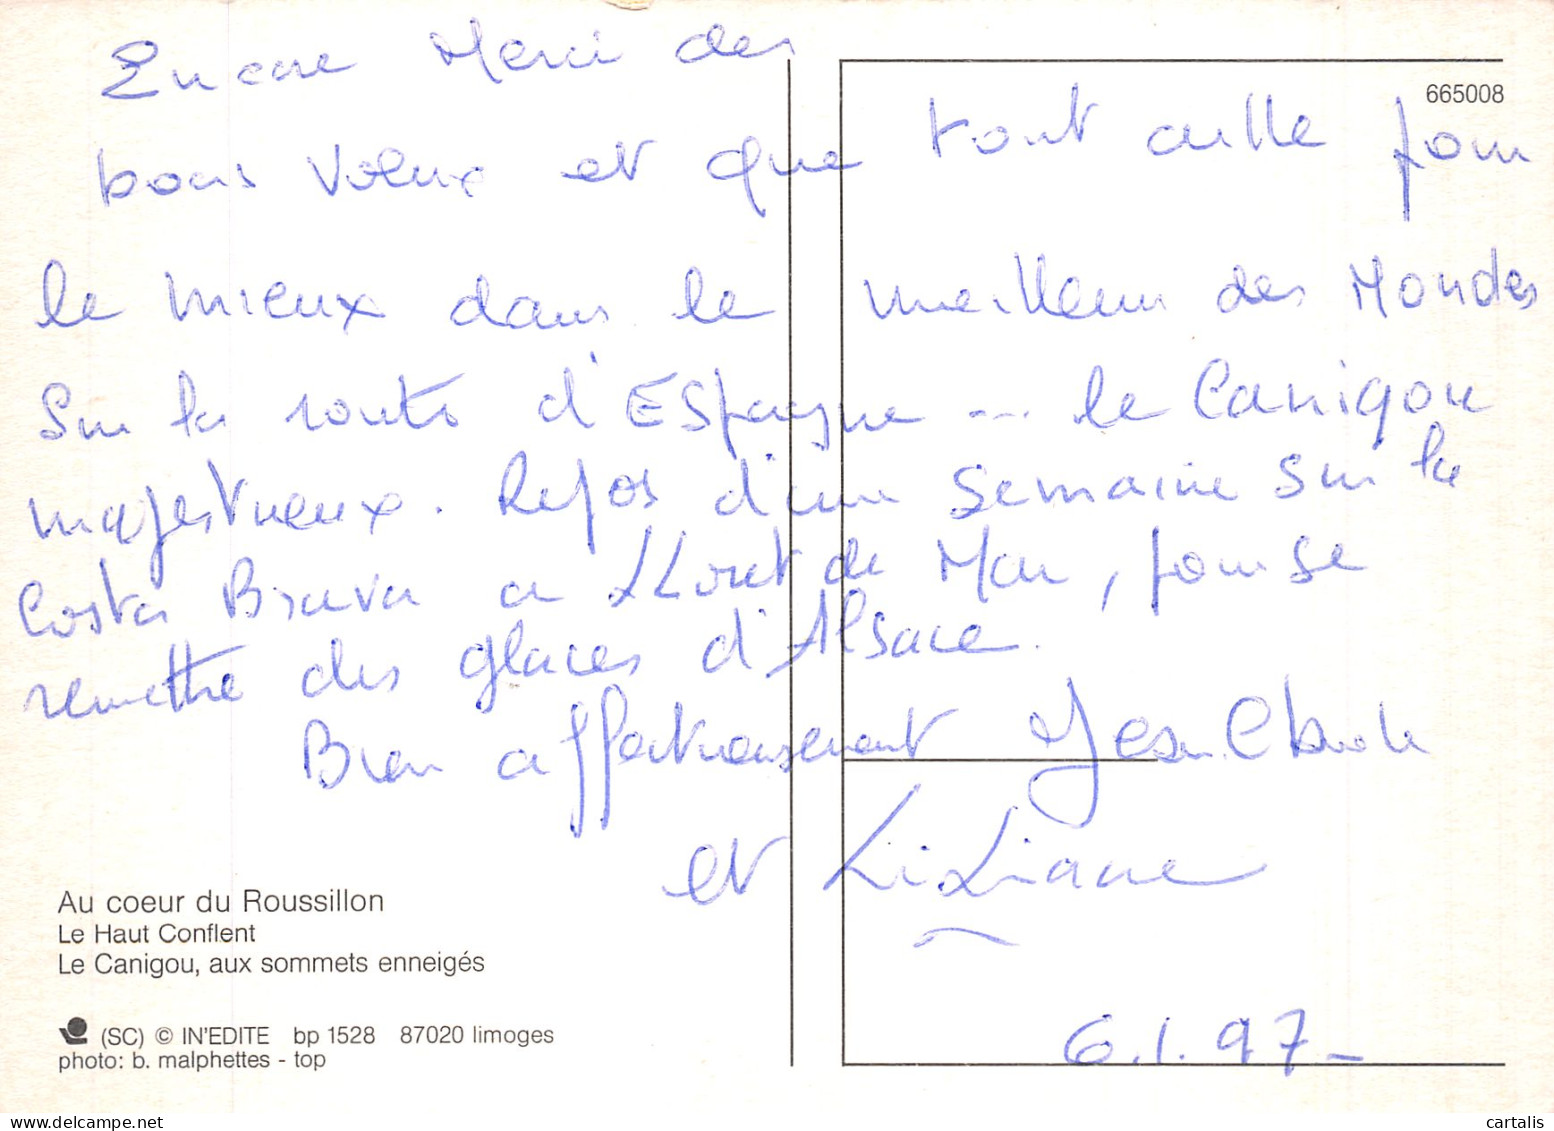 Encore Merci des
665008
bons vœux et que tout aille pour
le mieux dans le meilleur des Mondes
Sur la route d'Espagne ... le Canigou
majestueux. Repos d'une semaine sur la
Costa Brava a LLoret de Mar, pour se
remettre des glaces d'Alsace.
Bien affectueusement Jean Claude
et LiLiane
6.1.97-
Au coeur du Roussillon
Le Haut Conflent
Le Canigou, aux sommets enneigés
(SC) © IN'EDITE bp 1528 87020 limoges
photo: b. malphettes - top
cartalis